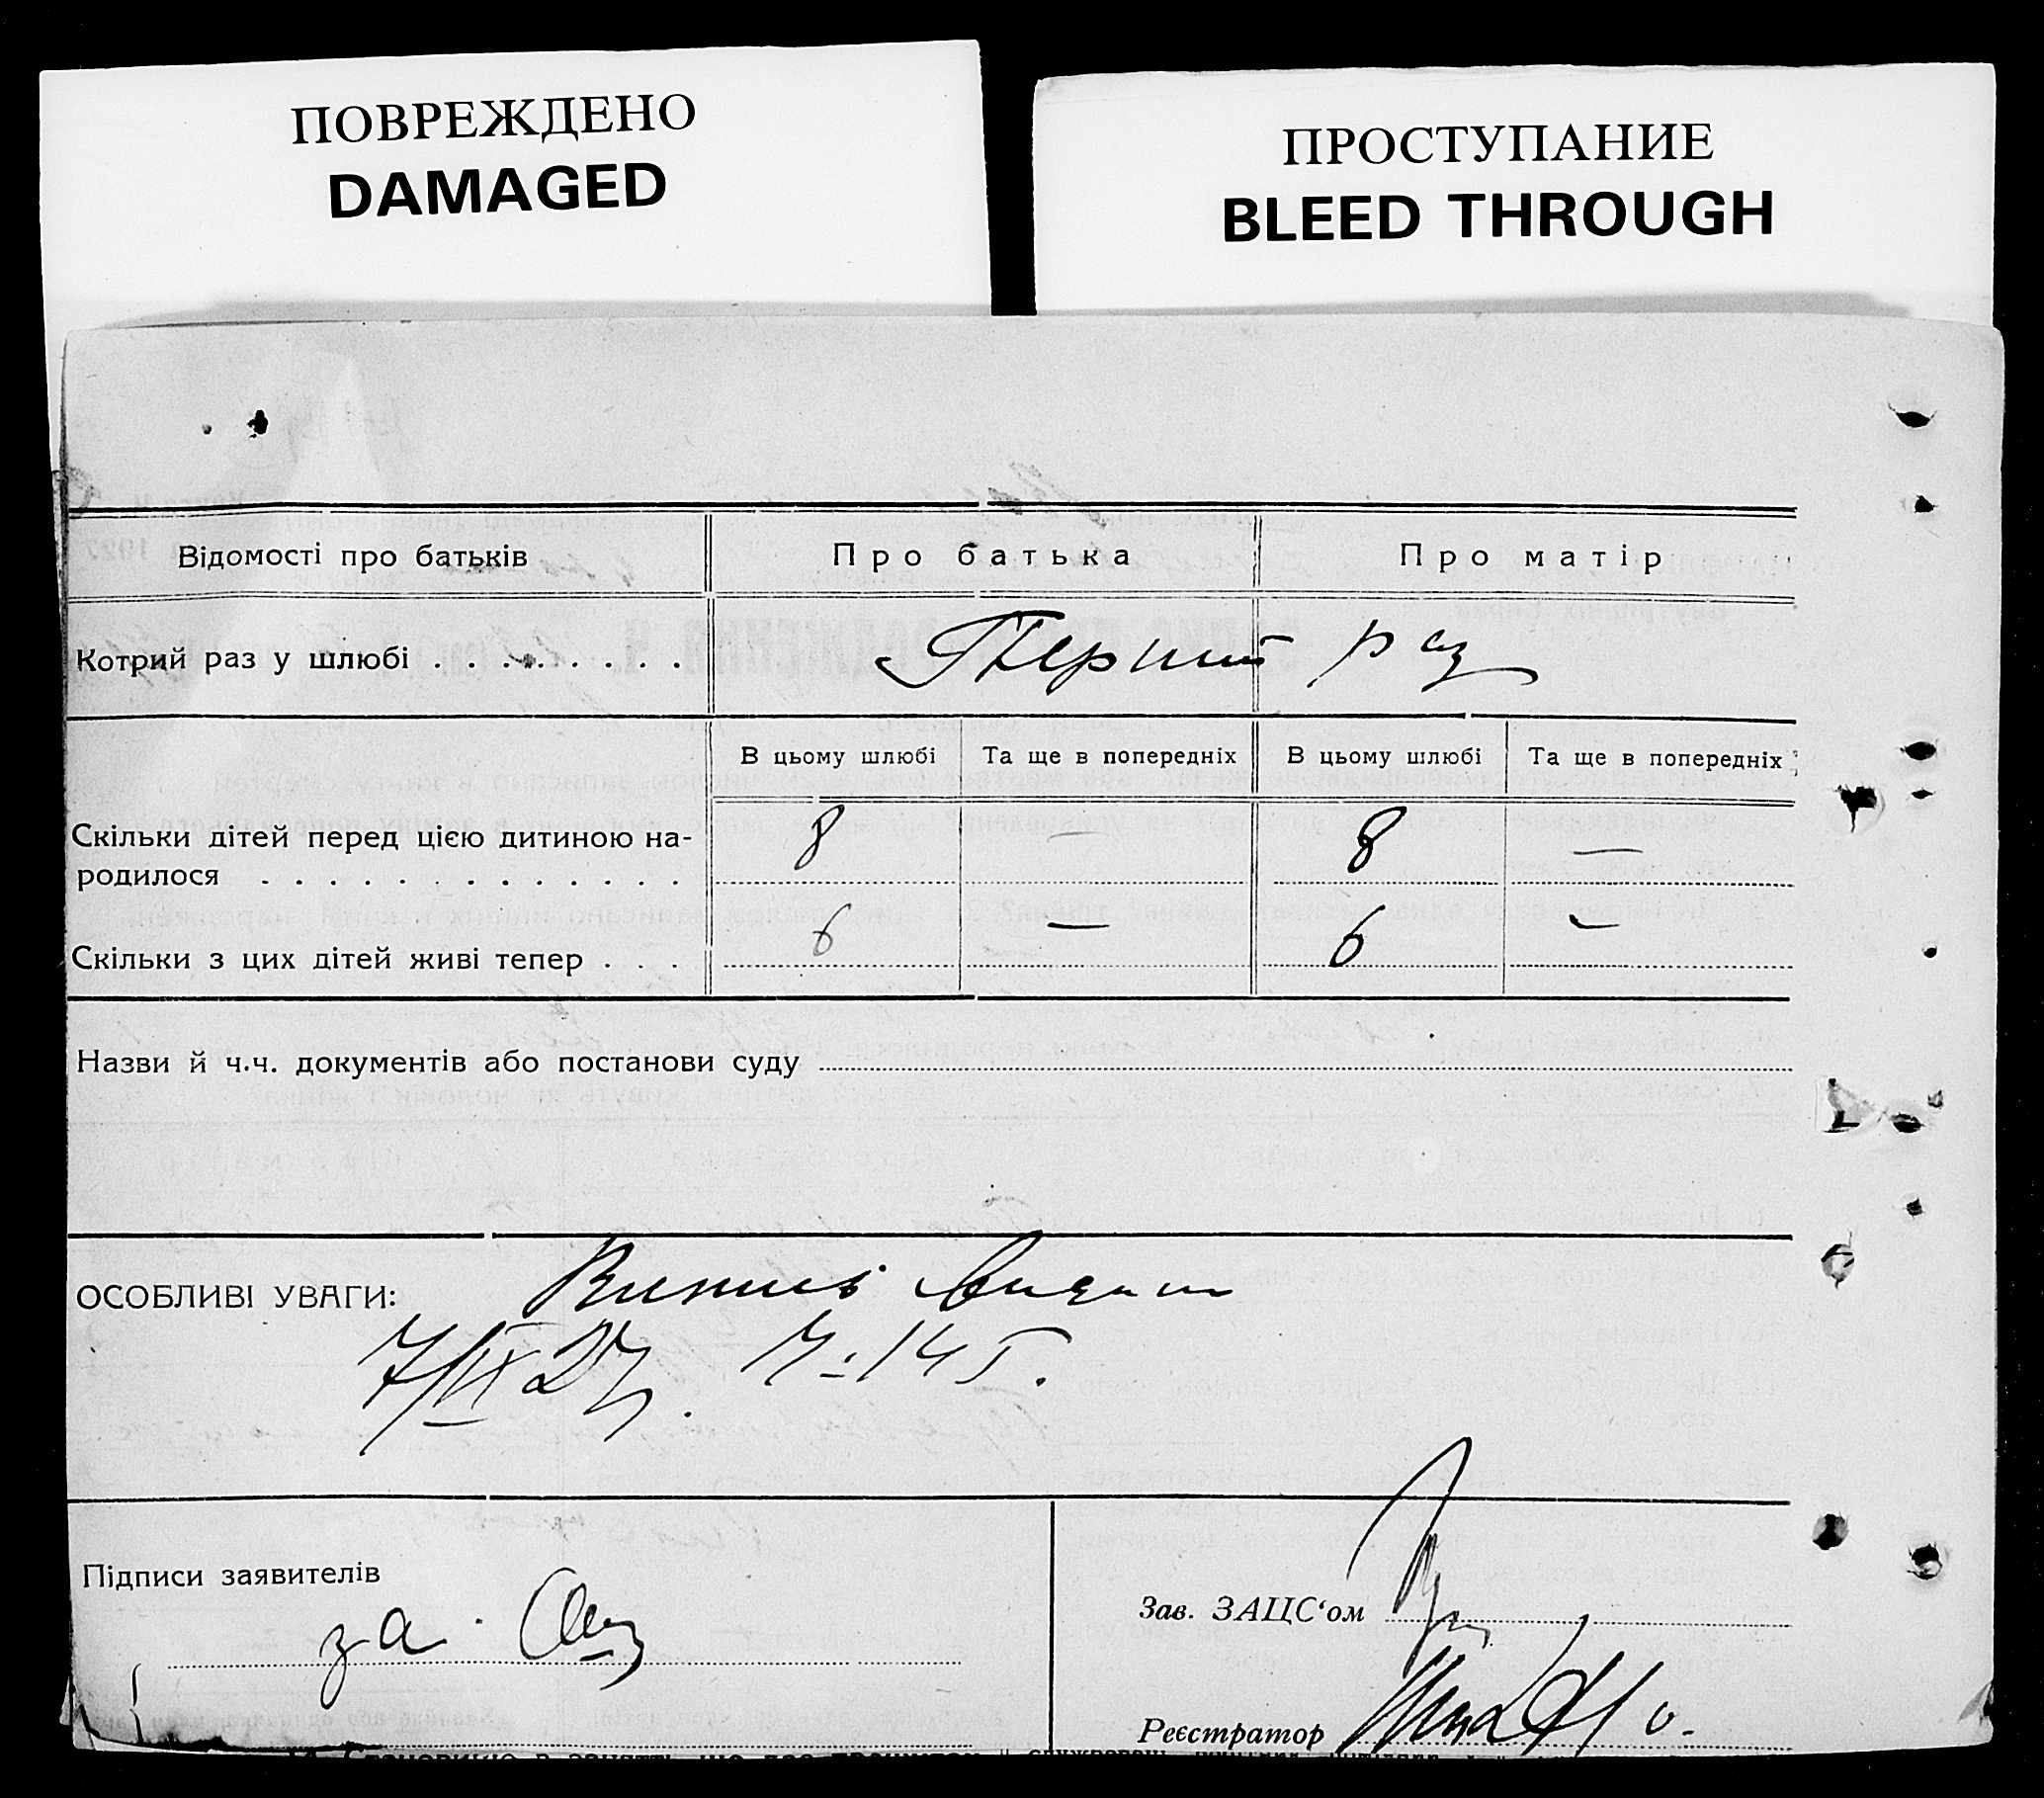 ПОВРЕЖДЕНО
DAMAGED
ПРОСТУПАНИЕ
BLEED THROUGH
Відомості про батьків
Про батька
Про матір
Котрий раз у шлюбі
Перший раз
В цьому шлюбі
Та ще в попередніх
В цьому шлюбі
Та ще в попередніх
Скільки дітей перед цією дитиною на-
родилося
8 — 8 —
Скільки з цих дітей живі тепер
6 — 6 —
Назви й ч.ч. документів або постанови суду
ОСОБЛИВІ УВАГИ:
7/IX 27
Підписи заявителів
за
Зав. ЗАЦС‘ом
Реєстратор